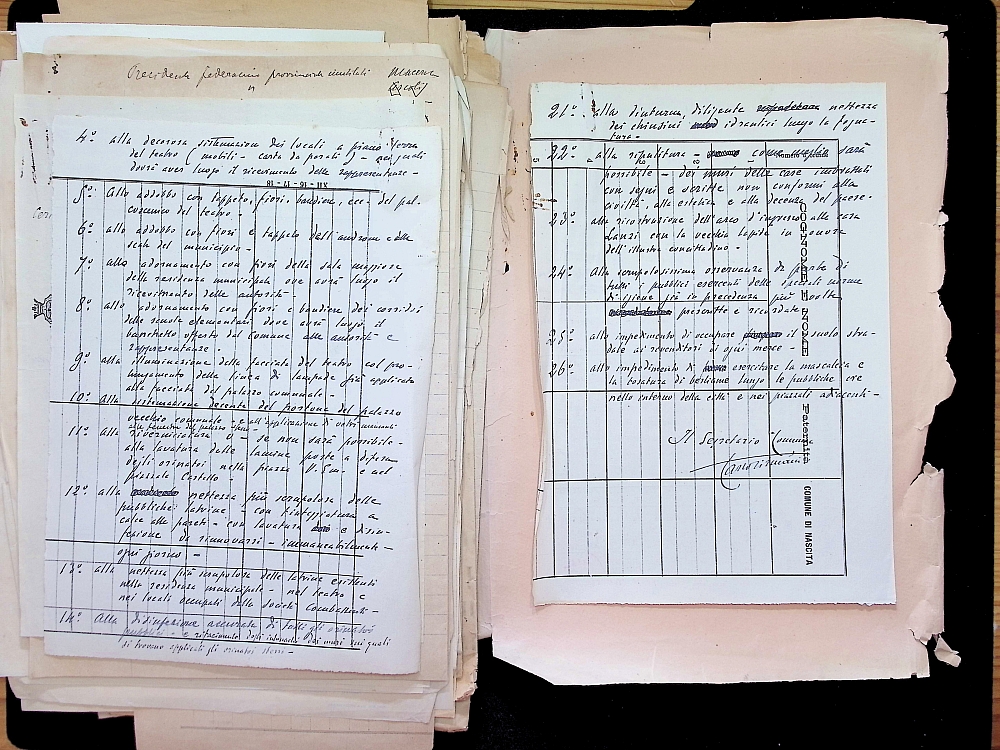 Presidente federazione provinciale mutilati Macerata
Ascoli
4° alla decorosa sistemazione dei locali a piano terra
del teatro (mobili - carta da parati) - nei quali
dovrà aver luogo il ricevimento delle rappresentanze -
5° Allo addobbo con tappeto, fiori, bandiere, ecc. del pal-
coscenico del teatro -
6° allo addobbo con fiori e tappeto dell'androne e delle
scale del municipio -
7° allo adornamento con fiori della sala maggiore
della residenza municipale ove avrà luogo il
ricevimento delle autorità -
8° allo adornamento con fiori e bandiere dei corridoi
delle scuole elementari dove avrà luogo il
banchetto offerto dal Comune alle autorità e
rappresentanze -
9° alla illuminazione della facciata del teatro col pro-
lungamento della linea di lampade già applicata
alla facciata del palazzo comunale -
10° alla sistemazione decente del portone del palazzo
vecchio comunale e all'applicazione di vetri mancanti
alle finestre del palazzo stesso -
11° alla riverniciatura o - se non sarà possibile -
alla lavatura delle lamine poste a difesa
degli orinatoi nella piazza V. Em. e nel
piazzale Castello -
12° alla nettezza più scrupolosa delle
pubbliche latrine - con tinteggiatura a
calce alle pareti - con lavatura e disin-
fezione da rinnovarsi - immancabilmente -
ogni giorno -
13° alla nettezza più scrupolosa delle latrine esistenti
nella residenza municipale - nel teatro e
nei locali occupati dalla società Combattenti -
14° Alla disinfezione accurata di tutti gli orinatoi
pubblici - e rifacimento degli intonachi dei muri nei quali
si trovano applicati gli orinatoi stessi -
21° alla diuturna, diligente nettezza
dei chiusini idraulici lungo la fogna-
tura -
22° alla ripulitura - come meglio sarà
possibile - dei muri delle case imbrattati
con segni e scritte non conformi alla
civiltà, alla estetica e alla decenza del paese -
23° alla ricostruzione dell'arco d'ingresso alla casa
Lanzi con la vecchia lapide in onore
dell'illustre concittadino -
24° Alla scrupolosissima osservanza da parte di
tutti i pubblici esercenti delle speciali norme
d'igiene già in precedenza più volte
prescritte e ricordate
25° allo impedimento di occupare il suolo stra-
dale ai rivenditori di ogni merce -
26° allo impedimento di esercitare la mascalcia e
la tosatura di bestiame lungo le pubbliche vie
nello interno della città e nei piazzali adiacenti -
Il Segretario Comunale
COGNOME E NOME
Paternità
COMUNE DI NASCITA